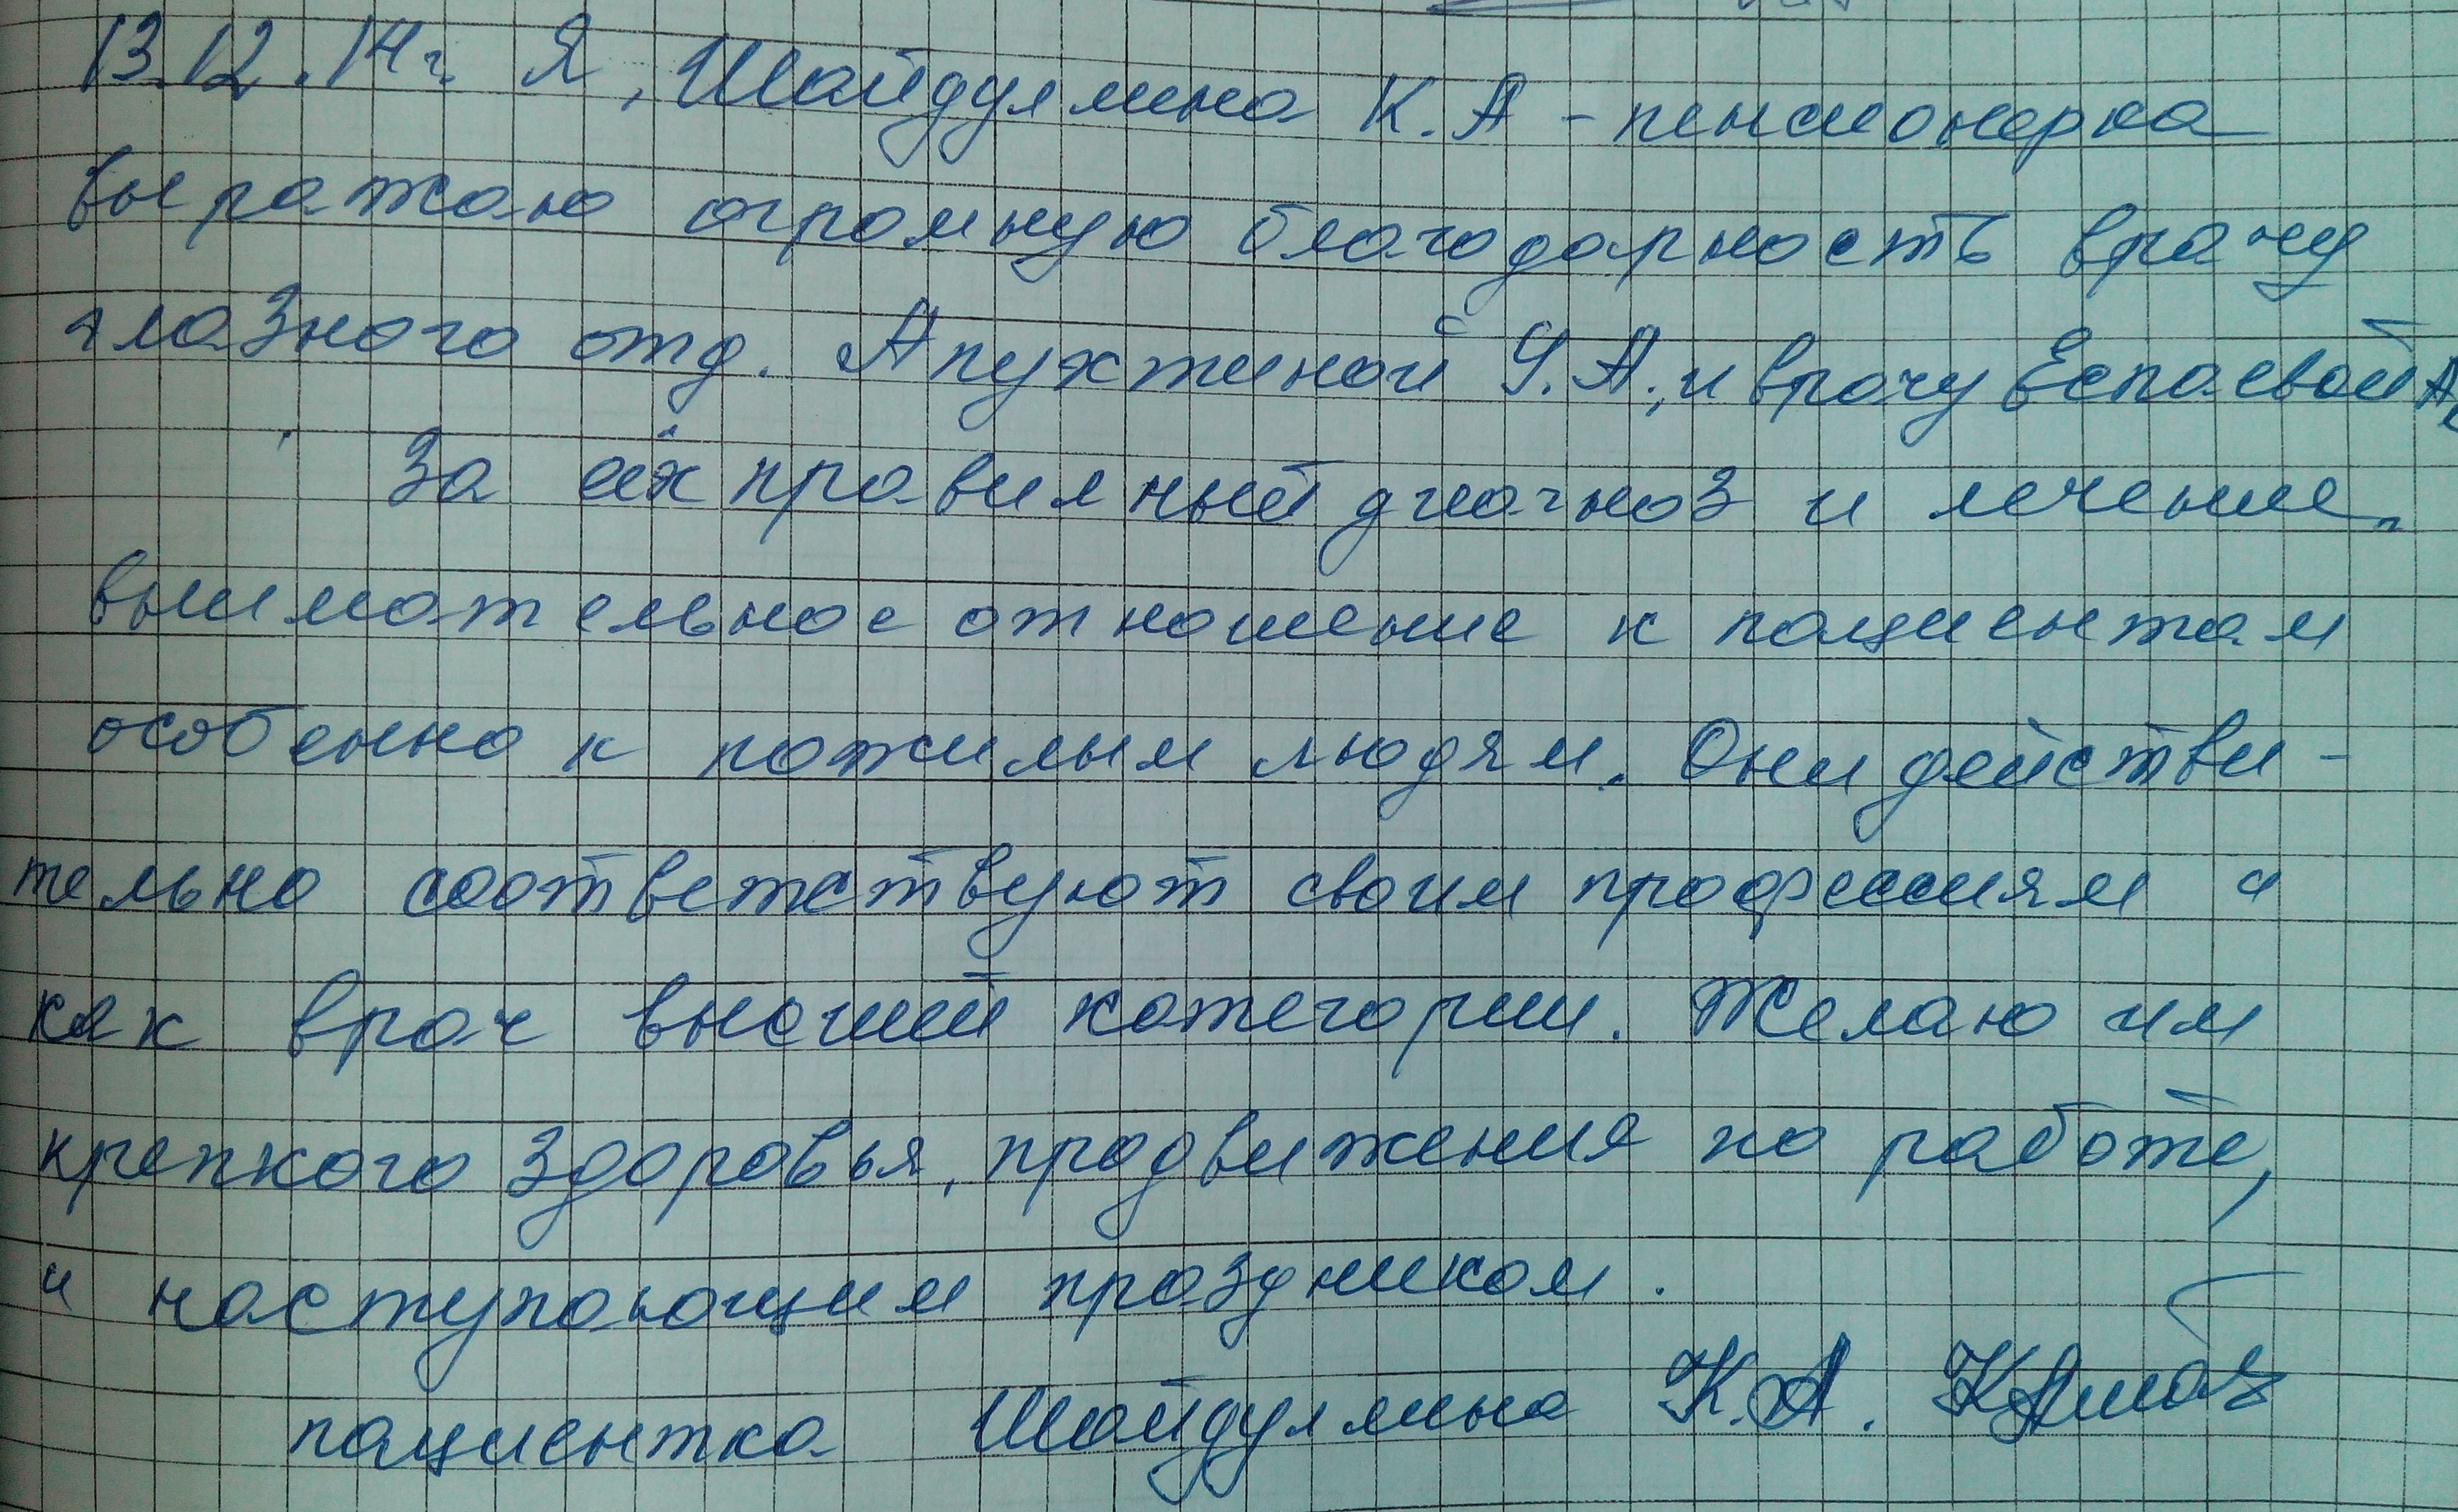 13.12.14г. Я, Шайдуллина К.А - пенсионерка
выражаю огромную благодарность врачу
глазного отд. Апухтиной Я.А., и врачу Еспаевой А
За их правилный диагноз и лечение,
внимательное отношение к пациентам
особенно к пожилым людям. Они действи-
тельно соответствуют своим профессиям и
как врач высшей категории. Желаю им
крепкого здоровья, продвижения по работе,
и наступающим праздником.
пациентка Шайдуллина К.А.